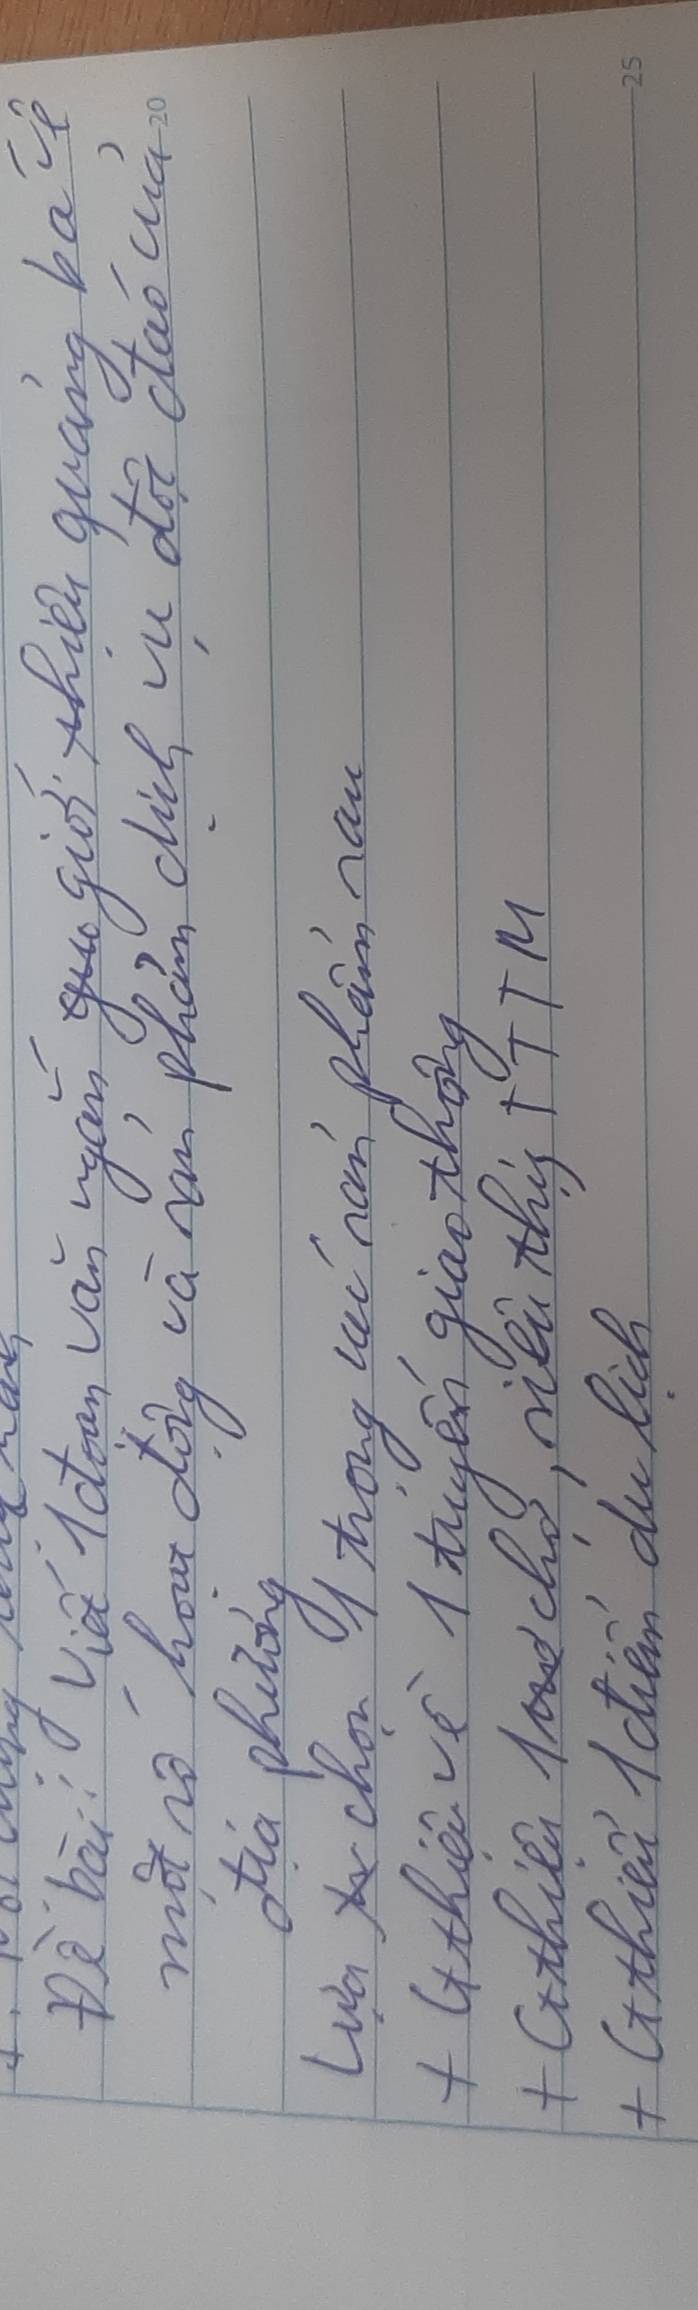 Đề bài: Viết 1 đoạn văn ngắn giới thiệu quảng bá về
một số hoạt động và sản phẩm dịch vụ độc đáo của 20
địa phương
Lựa chọn 1 trong các sản phẩm sau
+ Gthiệu về 1 tuyến giao thông
+ Gthiệu 1 chợ, siêu thị, TTTM
+ Gthiệu 1 điểm du lịch 25